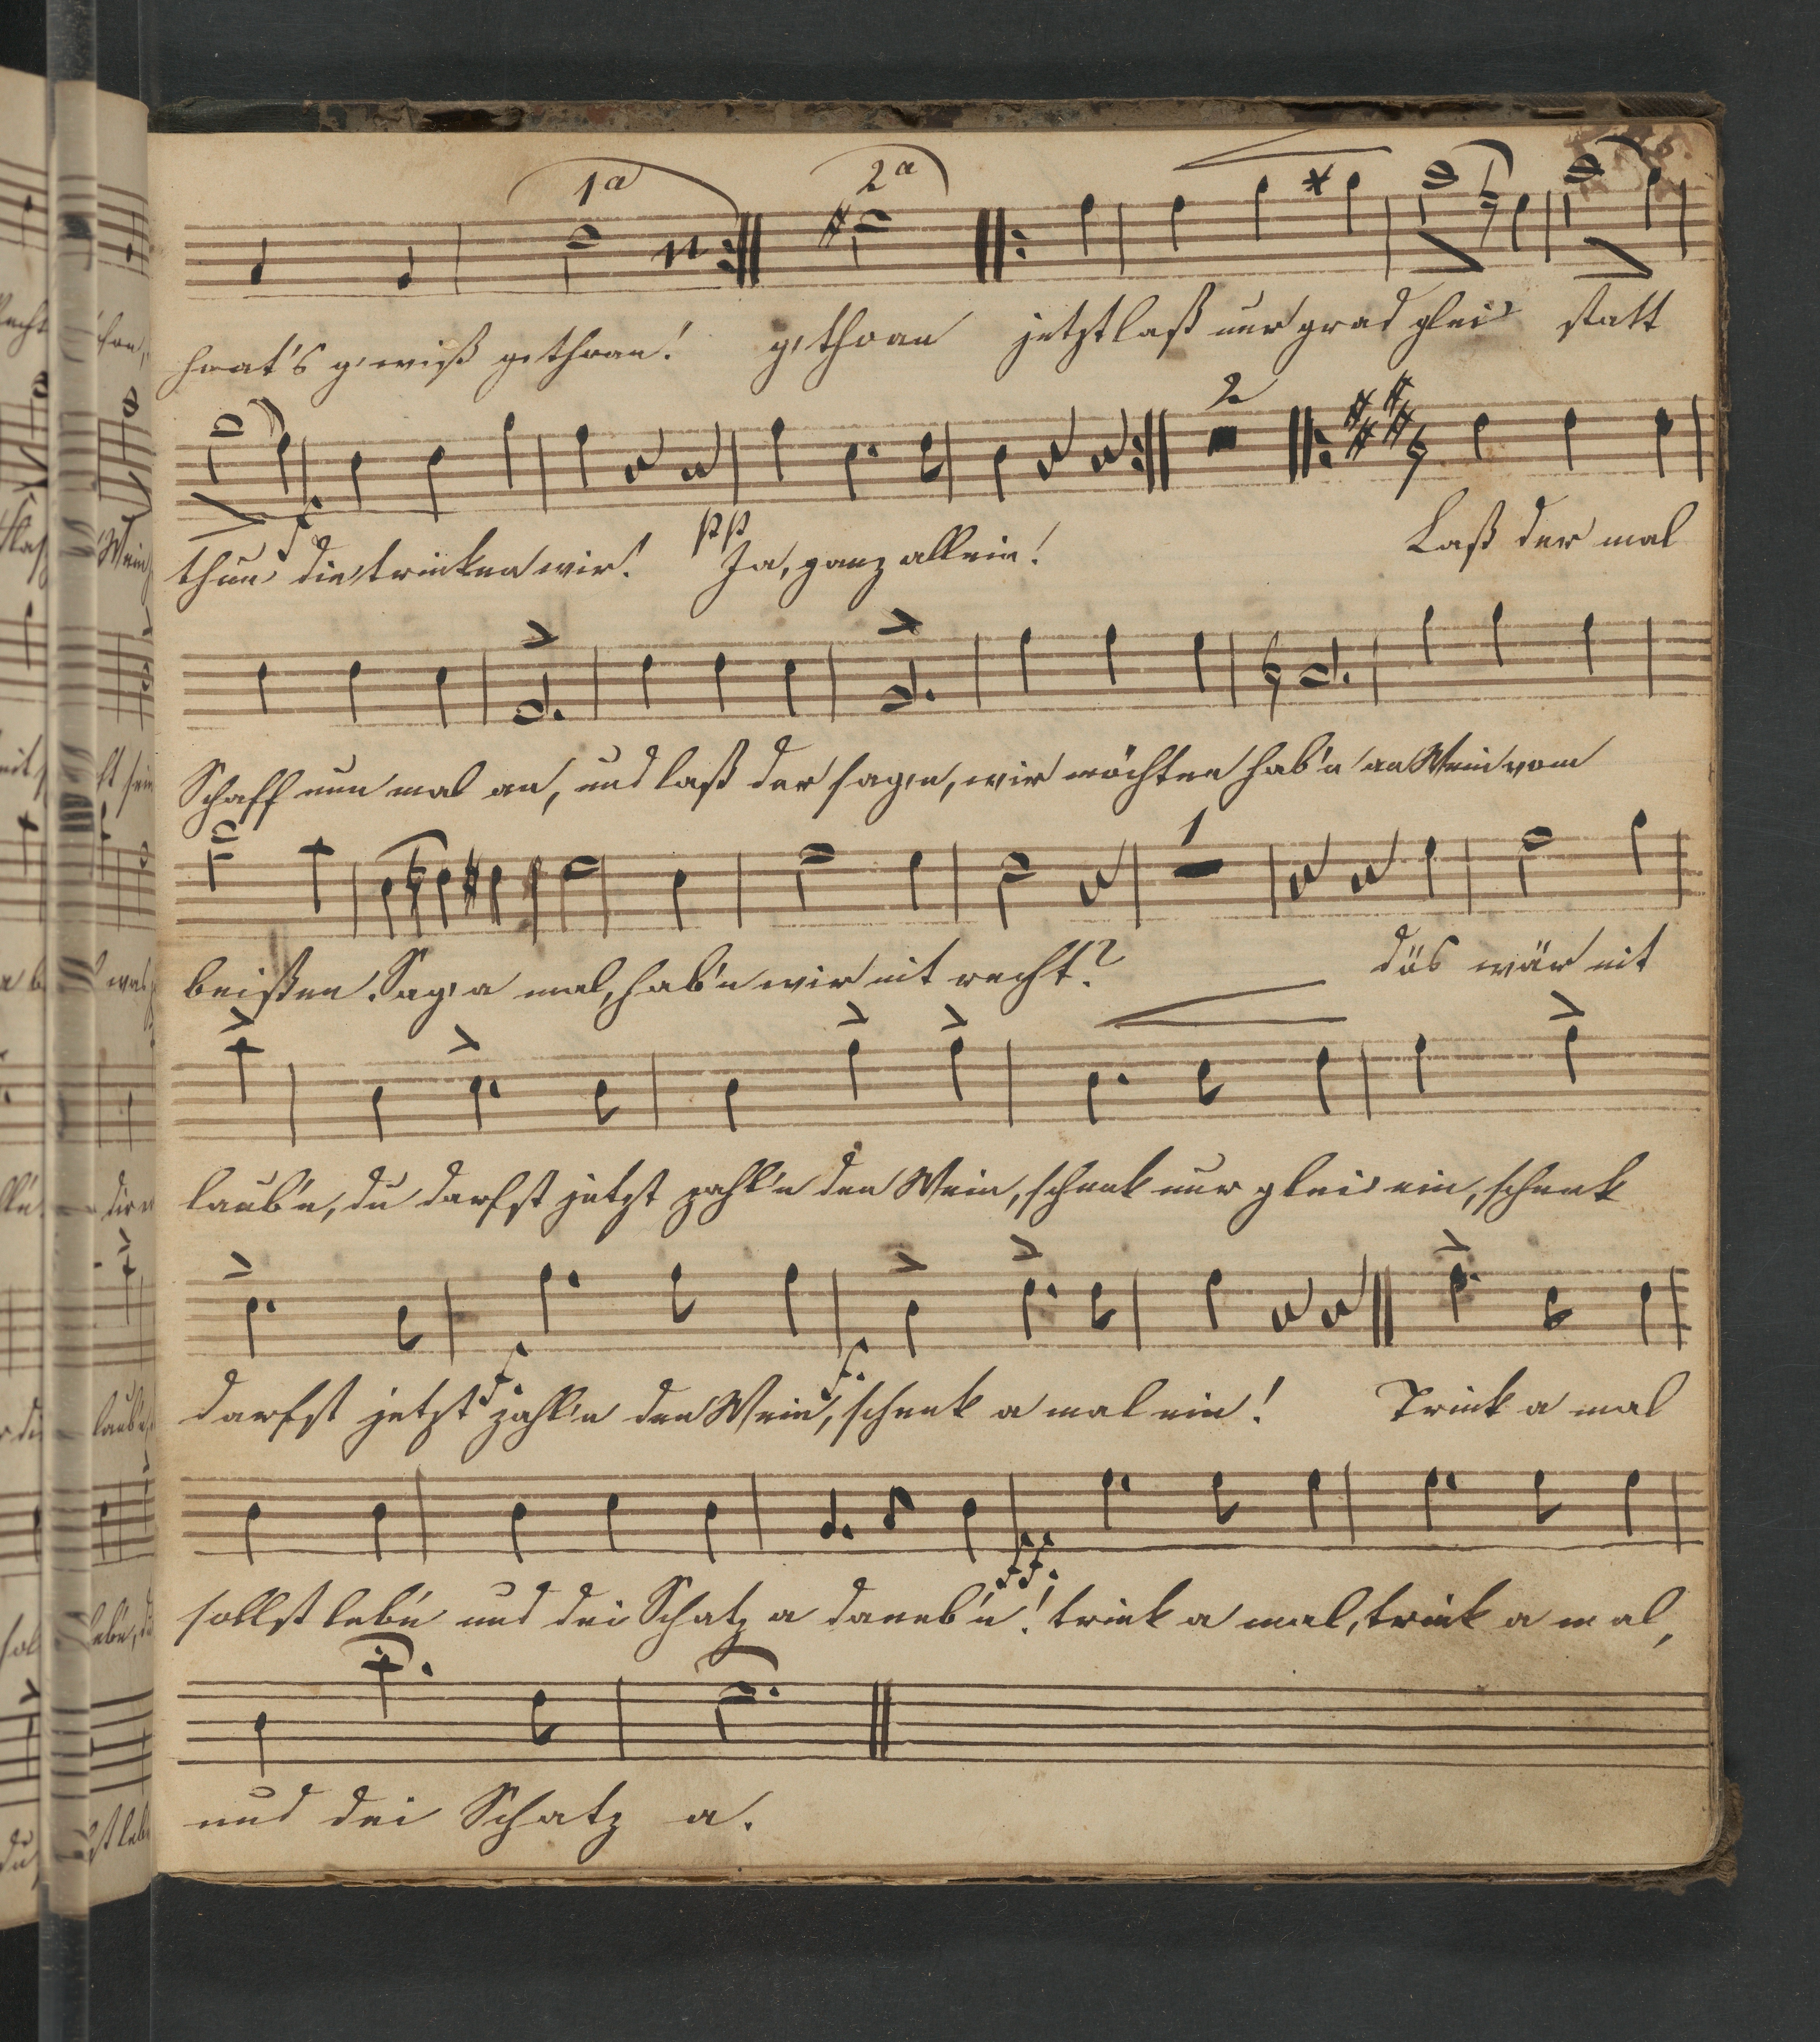 1a 2a
haat's g'wiß gethoan! g'thoan jetzt laß nur grad glei statt
2
thun die trinken wir! Ja, ganz allein! Laß der mal
f pp
Schaff nun mal an, und laß der sag'n, wir möchten hab'n an Wein vom
1
beißen. Sag' a mal, hab'n wir nit recht? däs wär nit
laub'n, du darfst jetzt zahl'n den Wein, schenk nur glei ein, schenk
f. f.
darfst jetzt zahl'n den Wein, schenk a mal ein! Trink a mal
ff.
sollst leb'n und dei Schatz a daneb'n! trink a mal, trink a mal,
und dei Schatz a.